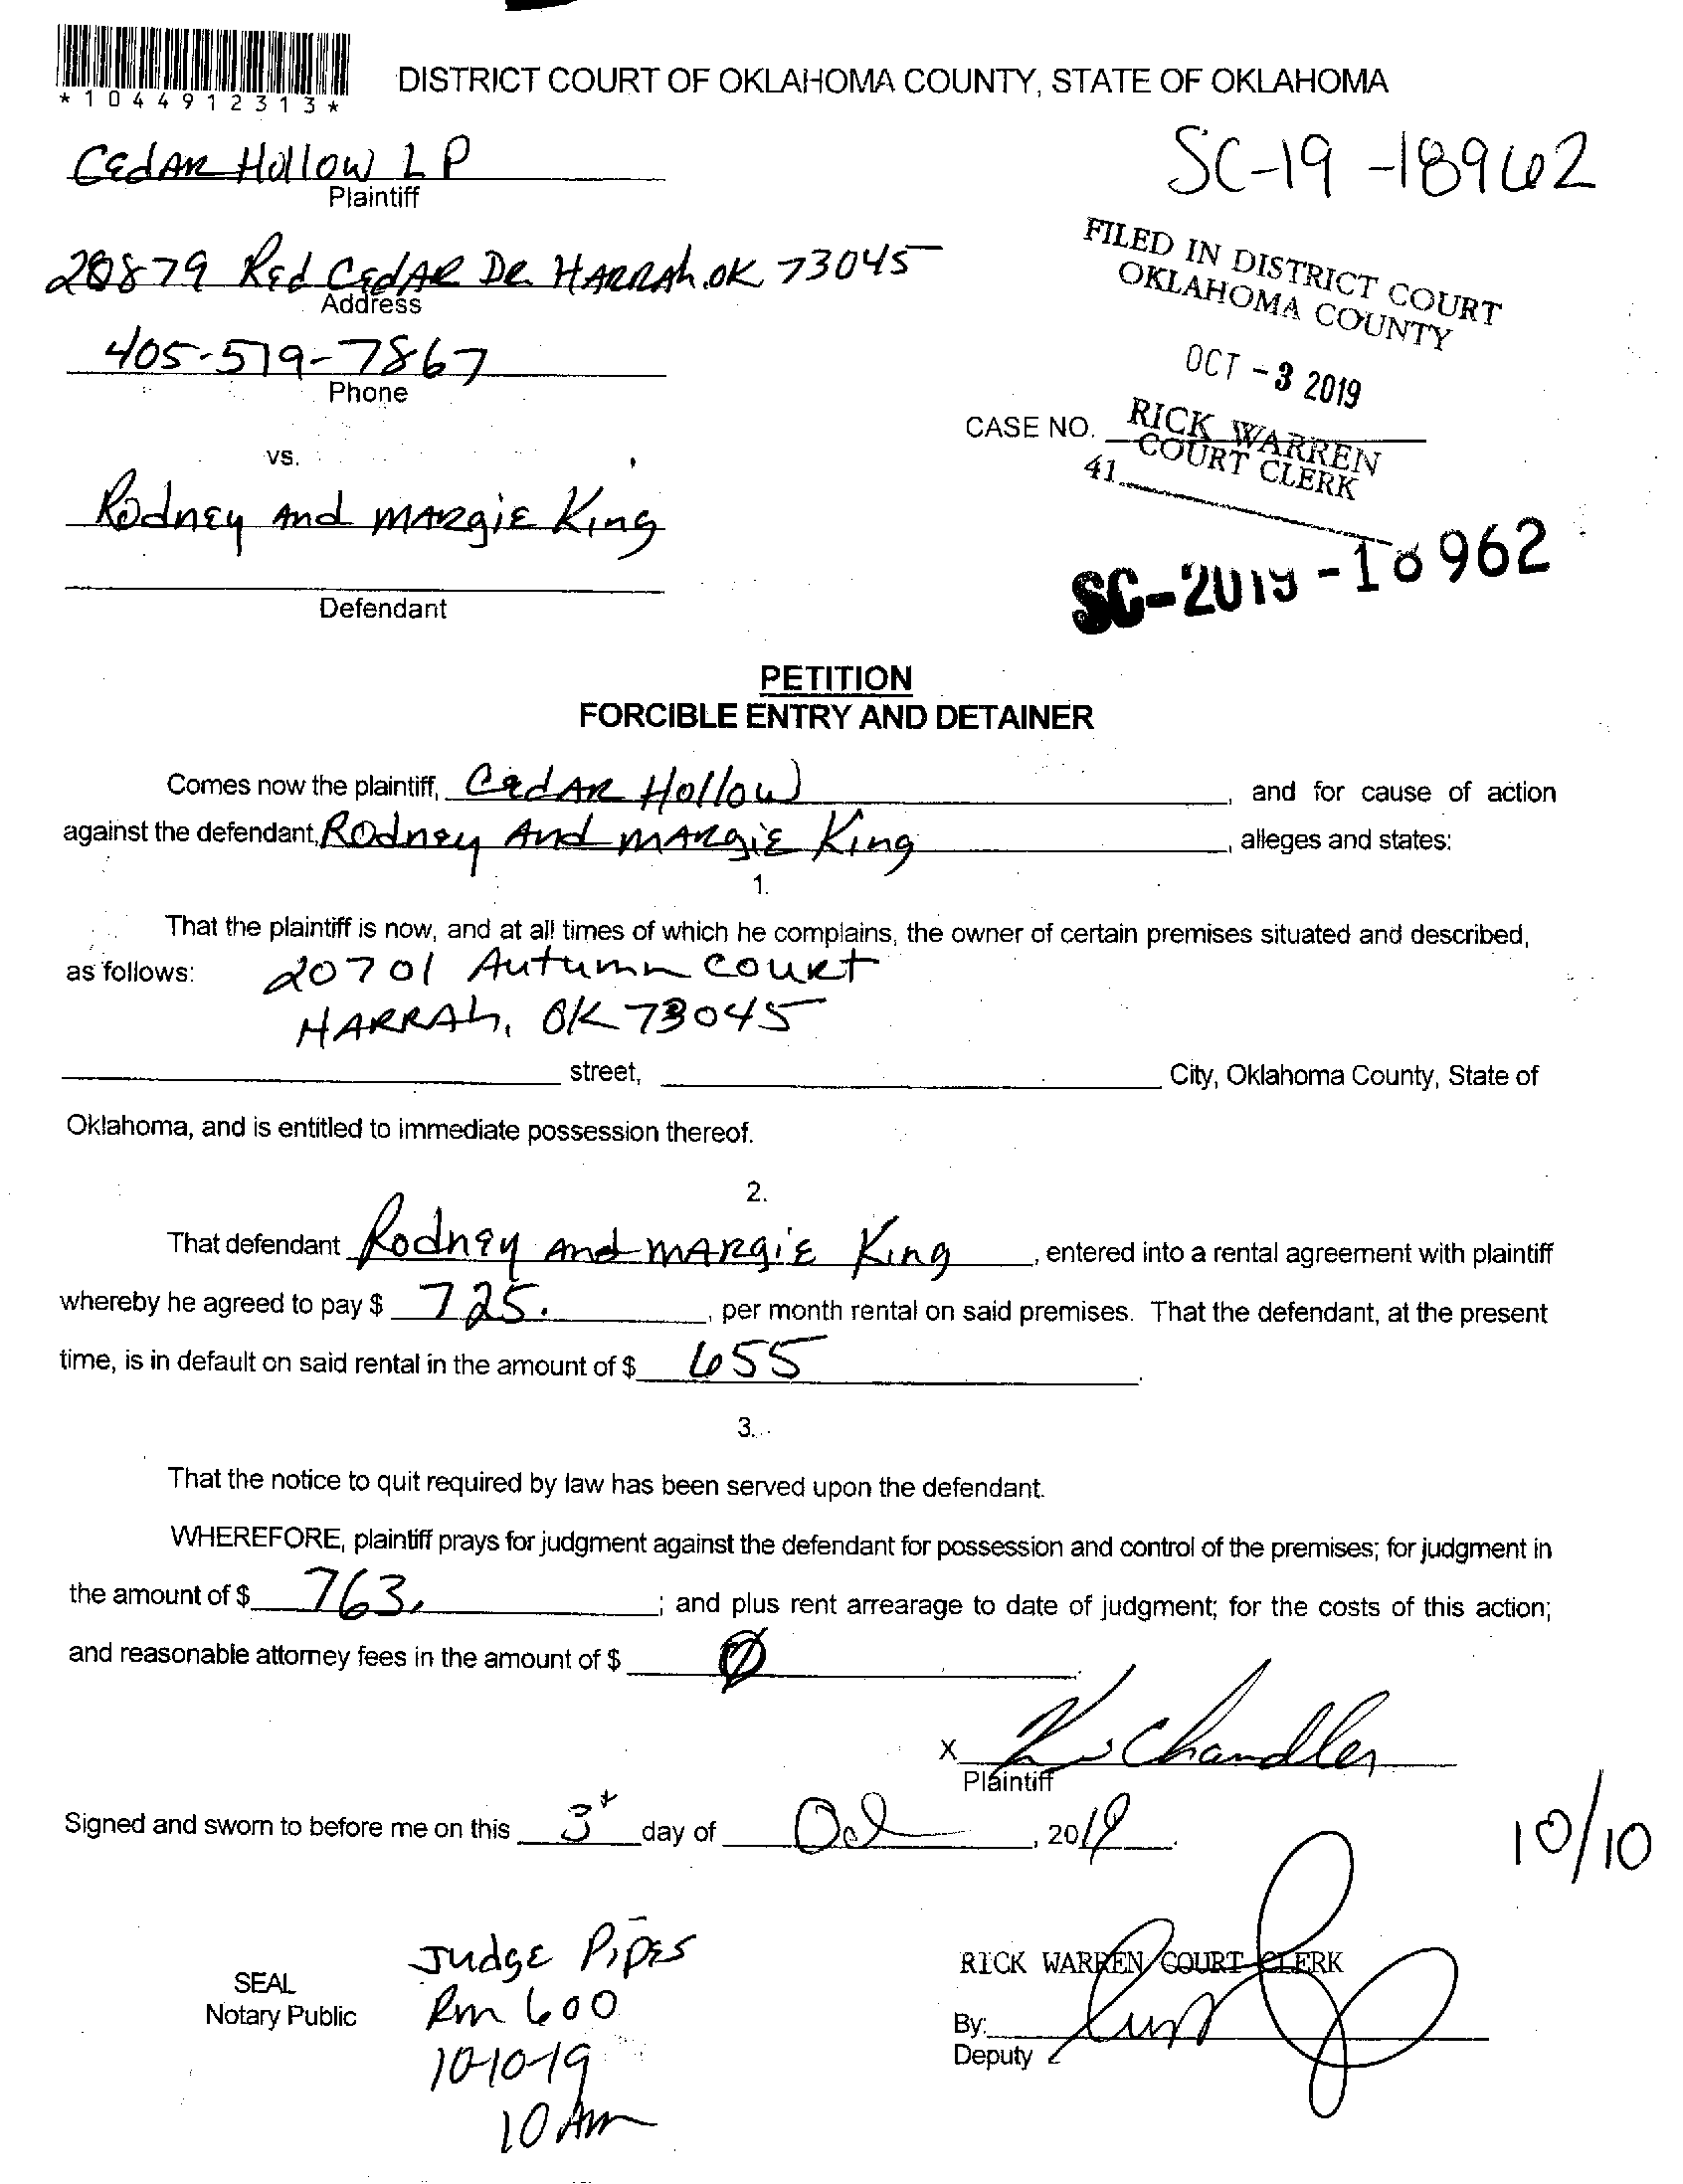 *1044912313*
DISTRICT COURT OF OKLAHOMA COUNTY, STATE OF OKLAHOMA
Cedar Hollow LP
Plaintiff
SC-19-18962
20879 Red Cedar Dr HARRAh.OK 73045
Address
405-519-7867
Phone
FILED IN DISTRICT COURT
OKLAHOMA COUNTY
OCT - 3 2019
RICK WARREN
COURT CLERK
41
CASE NO.
vs.
Rodney And Margie King
Defendant
SC-2019-18962
PETITION
FORCIBLE ENTRY AND DETAINER
Comes now the plaintiff, Cedar Hollow, and for cause of action
against the defendant, Rodney And Margie King, alleges and states:
1.
That the plaintiff is now, and at all times of which he complains, the owner of certain premises situated and described,
as follows: 20701 Autumn Court
HARRAh, OK 73045
street, City, Oklahoma County, State of
Oklahoma, and is entitled to immediate possession thereof.
2.
That defendant Rodney and Margie King, entered into a rental agreement with plaintiff
whereby he agreed to pay $ 725. , per month rental on said premises. That the defendant, at the present
time, is in default on said rental in the amount of $ 655.
3.
That the notice to quit required by law has been served upon the defendant.
WHEREFORE, plaintiff prays for judgment against the defendant for possession and control of the premises; for judgment in
the amount of $ 763. ; and plus rent arrearage to date of judgment; for the costs of this action;
and reasonable attorney fees in the amount of $ Ø.
X K Chandler
Plaintiff
Signed and sworn to before me on this 3 day of Oct, 2019.
10/10
SEAL
Notary Public
Judge Pipes
Rm 600
10-10-19
10 Am
RICK WARREN COURT CLERK
By:
Deputy